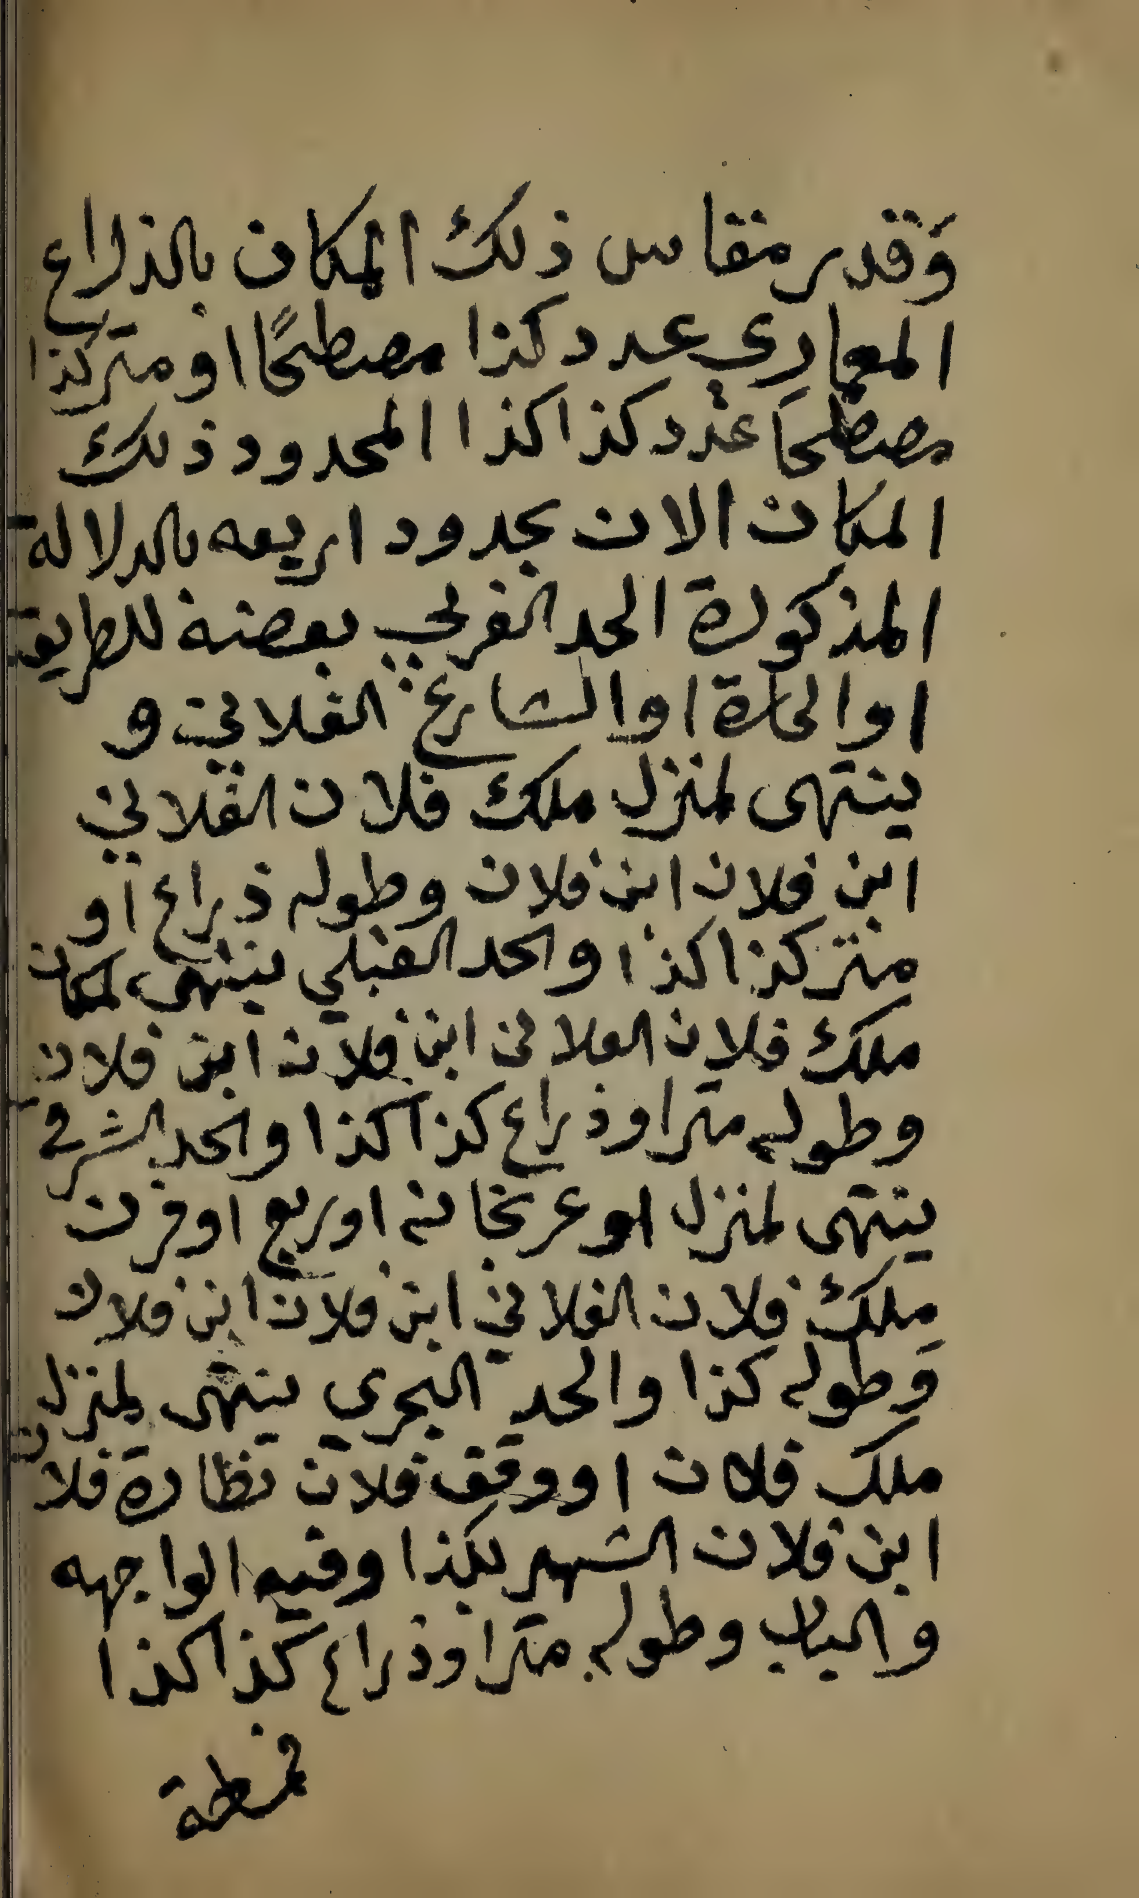 وقدر مقاس ذلك المكان بالذراع
المعماري عدد كذا مصطحًا او متر كذا
مصطحا عدد كذا كذا المحدود ذلك
المكان الان بحدود اربعه بالدلالة
المذكورة الحد الغربي بعضه للطريق
او الحارة او الشارع الفلاني و
ينتهى لمنزل ملك فلان الفلاني
ابن فلان ابن فلان وطوله ذراع او
متر كذا كذا والحد القبلي ينتهى لمكان
ملك فلان الفلانى ابن فلان ابن فلان
وطوله متر او ذراع كذا كذا والحد الشرقي
ينتهى لمنزل او عربخانه او ربع او فرن
ملك فلان الفلاني ابن فلان ابن فلان
وطوله كذا والحد البحري ينتهى لمنزل
ملك فلان او وقف فلان نظارة فلان
ابن فلان الشهير بكذا وفيه الواجهه
والباب وطوله متر او ذراع كذا كذا